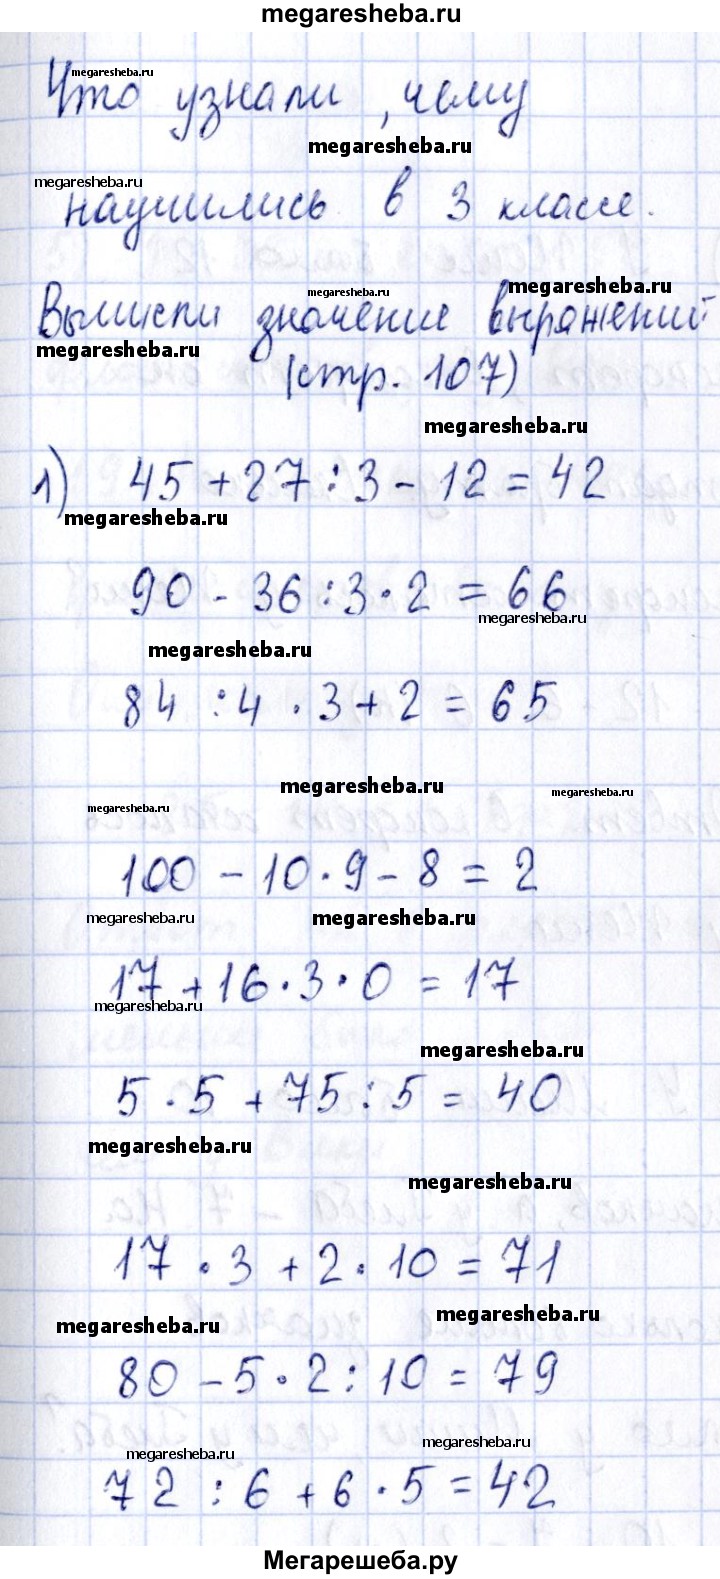 megaresheba.ru
megaresheba.ru
Что узнали, чему
megaresheba.ru
megaresheba.ru
научились в 3 классе.
megaresheba.ru
megaresheba.ru
Вычисли значение выражений
megaresheba.ru
(стр. 107)
megaresheba.ru
1) 45 + 27 : 3 - 12 = 42
megaresheba.ru
90 - 36 : 3 · 2 = 66
megaresheba.ru
megaresheba.ru
84 : 4 · 3 + 2 = 65
megaresheba.ru
megaresheba.ru
megaresheba.ru
100 - 10 · 9 - 8 = 2
megaresheba.ru
megaresheba.ru
17 + 16 · 3 · 0 = 17
megaresheba.ru
megaresheba.ru
5 · 5 + 75 : 5 = 40
megaresheba.ru
megaresheba.ru
17 · 3 + 2 · 10 = 71
megaresheba.ru
megaresheba.ru
80 - 5 · 2 : 10 = 79
megaresheba.ru
megaresheba.ru
72 : 6 + 6 · 5 = 42
Мегарешеба.ру